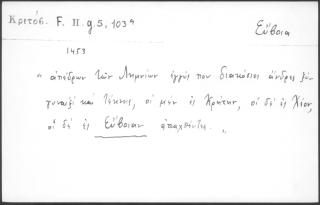 Κριτόβ. F. H. g. 5, 103⁹
Εὔβοια
1453
" ἀπέδρων τῶν Λημνίων ἐγγύς που διακόσιοι ἄνδρες ξὺν
γυναιξὶ καὶ τέκνοις, οἱ μὲν ἐς Κρήτην, οἱ δὲ ἐς Χίον,
οἱ δὲ ἐς Εὔβοιαν ἀπαχθέντες. „